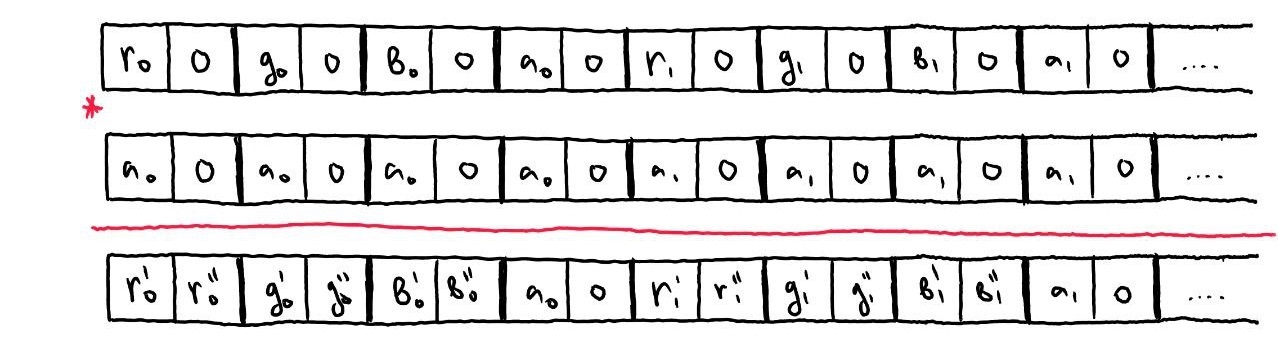 r₀ 0 g₀ 0 B₀ 0 a₀ 0 r₁ 0 g₁ 0 B₁ 0 a₁ 0 ....
*
a₀ 0 a₀ 0 a₀ 0 a₀ 0 a₁ 0 a₁ 0 a₁ 0 a₁ 0 ....
r₀' r₀'' g₀' g₀'' B₀' B₀'' a₀ 0 r₁' r₁'' g₁' g₁'' B₁' B₁'' a₁ 0 ....